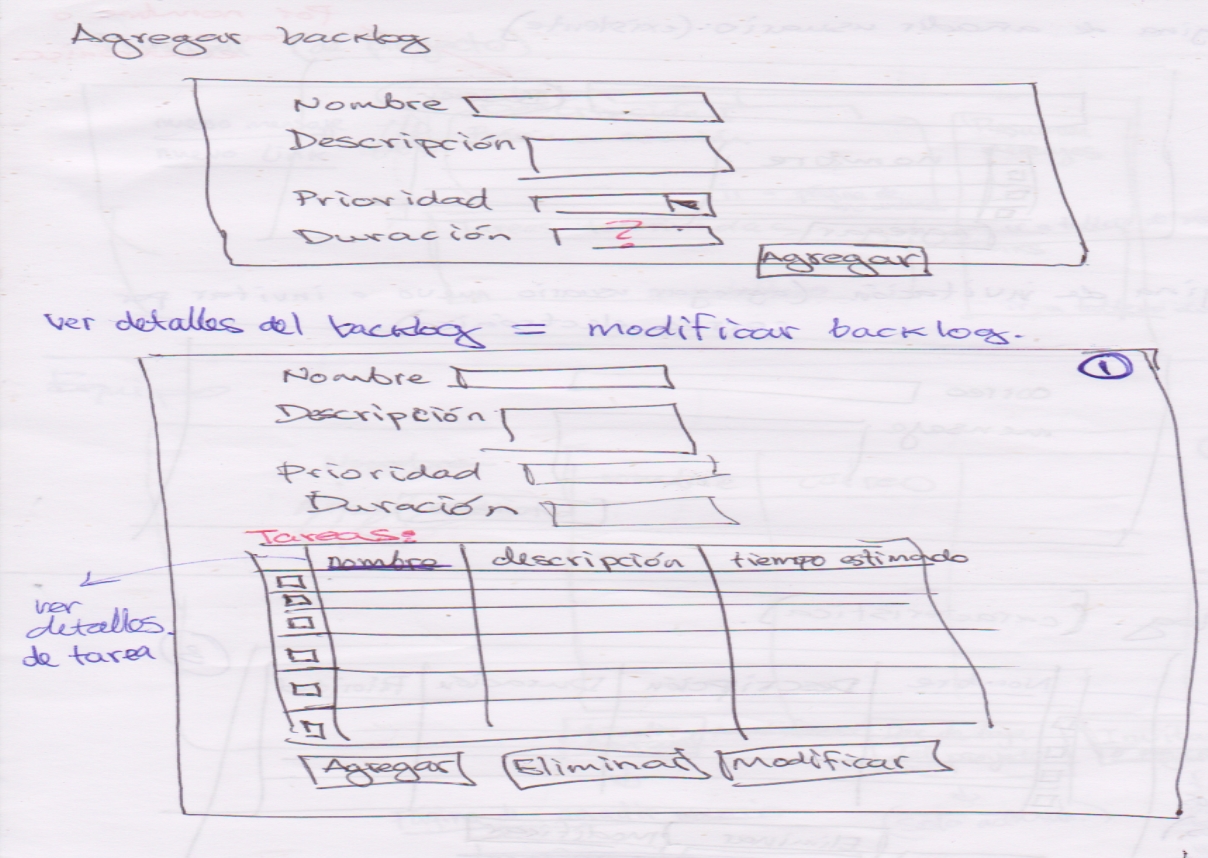 Agregar backlog
Nombre
Descripción
Prioridad
Duración ?
Agregar
ver detalles del backlog = modificar backlog.
1
Nombre
Descripción
Prioridad
Duración
Tareas:
nombre descripción tiempo estimado
ver
detalles
de tarea
Agregar Eliminar Modificar